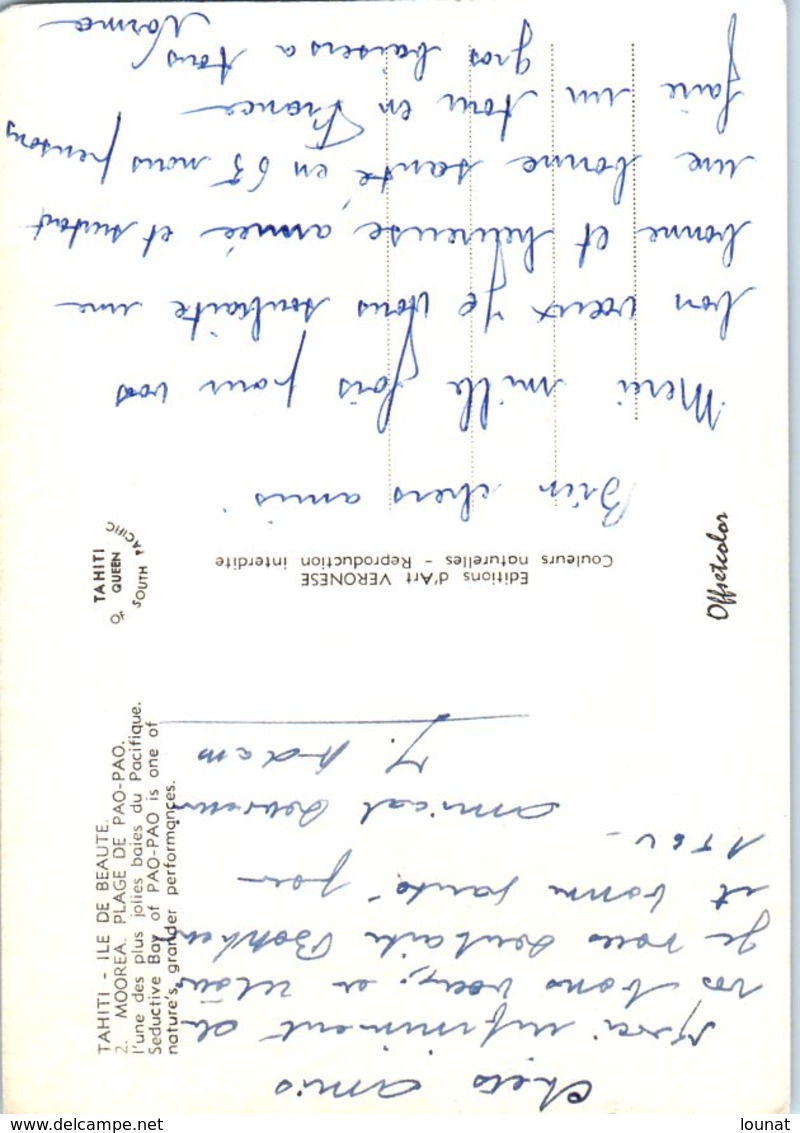 Chers amis
Merci infiniment de
vos bons voeux, en retour
Je vous souhaite Bonheur
et bonne santé pour
1964 -
amical souvenir
Y. Adam
TAHITI - ILE DE BEAUTE.
2. MOOREA. PLAGE DE PAO-PAO.
l'une des plus jolies baies du Pacifique.
Seductive Bay of PAO-PAO is one of
nature's grander performances.
TAHITI
QUEEN
OF SOUTH PACIFIC
Editions d'Art VERONESE
Couleurs naturelles - Reproduction interdite
Offsetcolor
Bien chers amis
Merci mille fois pour vos
bon vœux je vous souhaite une
bonne et heureuse année et surtout
une bonne santé, en 65 nous pensons
faire un tour en France
gros baisers a tous
Norma
www.delcampe.net
lounat